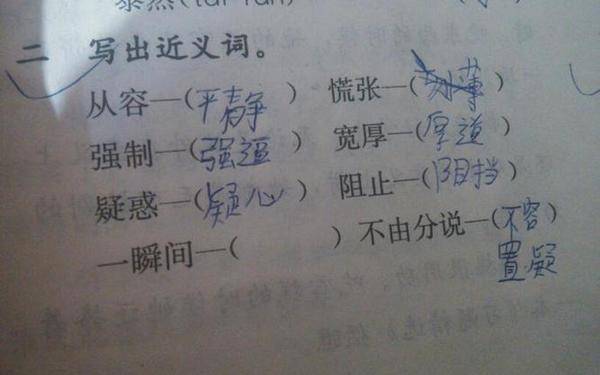 泰然(tài rán)
二 写出近义词。
从容—(平静) 慌张—( )
强制—(强逼) 宽厚—(厚道)
疑惑—(疑心) 阻止—(阻挡)
一瞬间—( ) 不由分说—(不容
置疑)